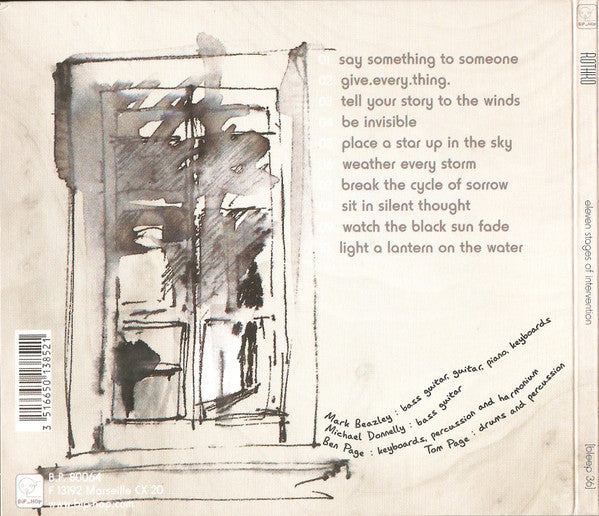 BiP_HOp
01 say something to someone
02 give.every.thing.
03 tell your story to the winds
04 be invisible
05 place a star up in the sky
06 weather every storm
07 break the cycle of sorrow
08 sit in silent thought
watch the black sun fade
light a lantern on the water
Mark Beazley : bass guitar, guitar, piano, keyboards
Michael Donnelly : bass guitar
Ben Page : keyboards, percussion and harmonium
Tom Page : drums and percussion
3 516650 138521
B.P. 90064
F 13192 Marseille CX 20
www.bip-hop.com
BiP_HOp
ROTHKO
eleven stages of intervention
[bleep 36]
BiP_HOp